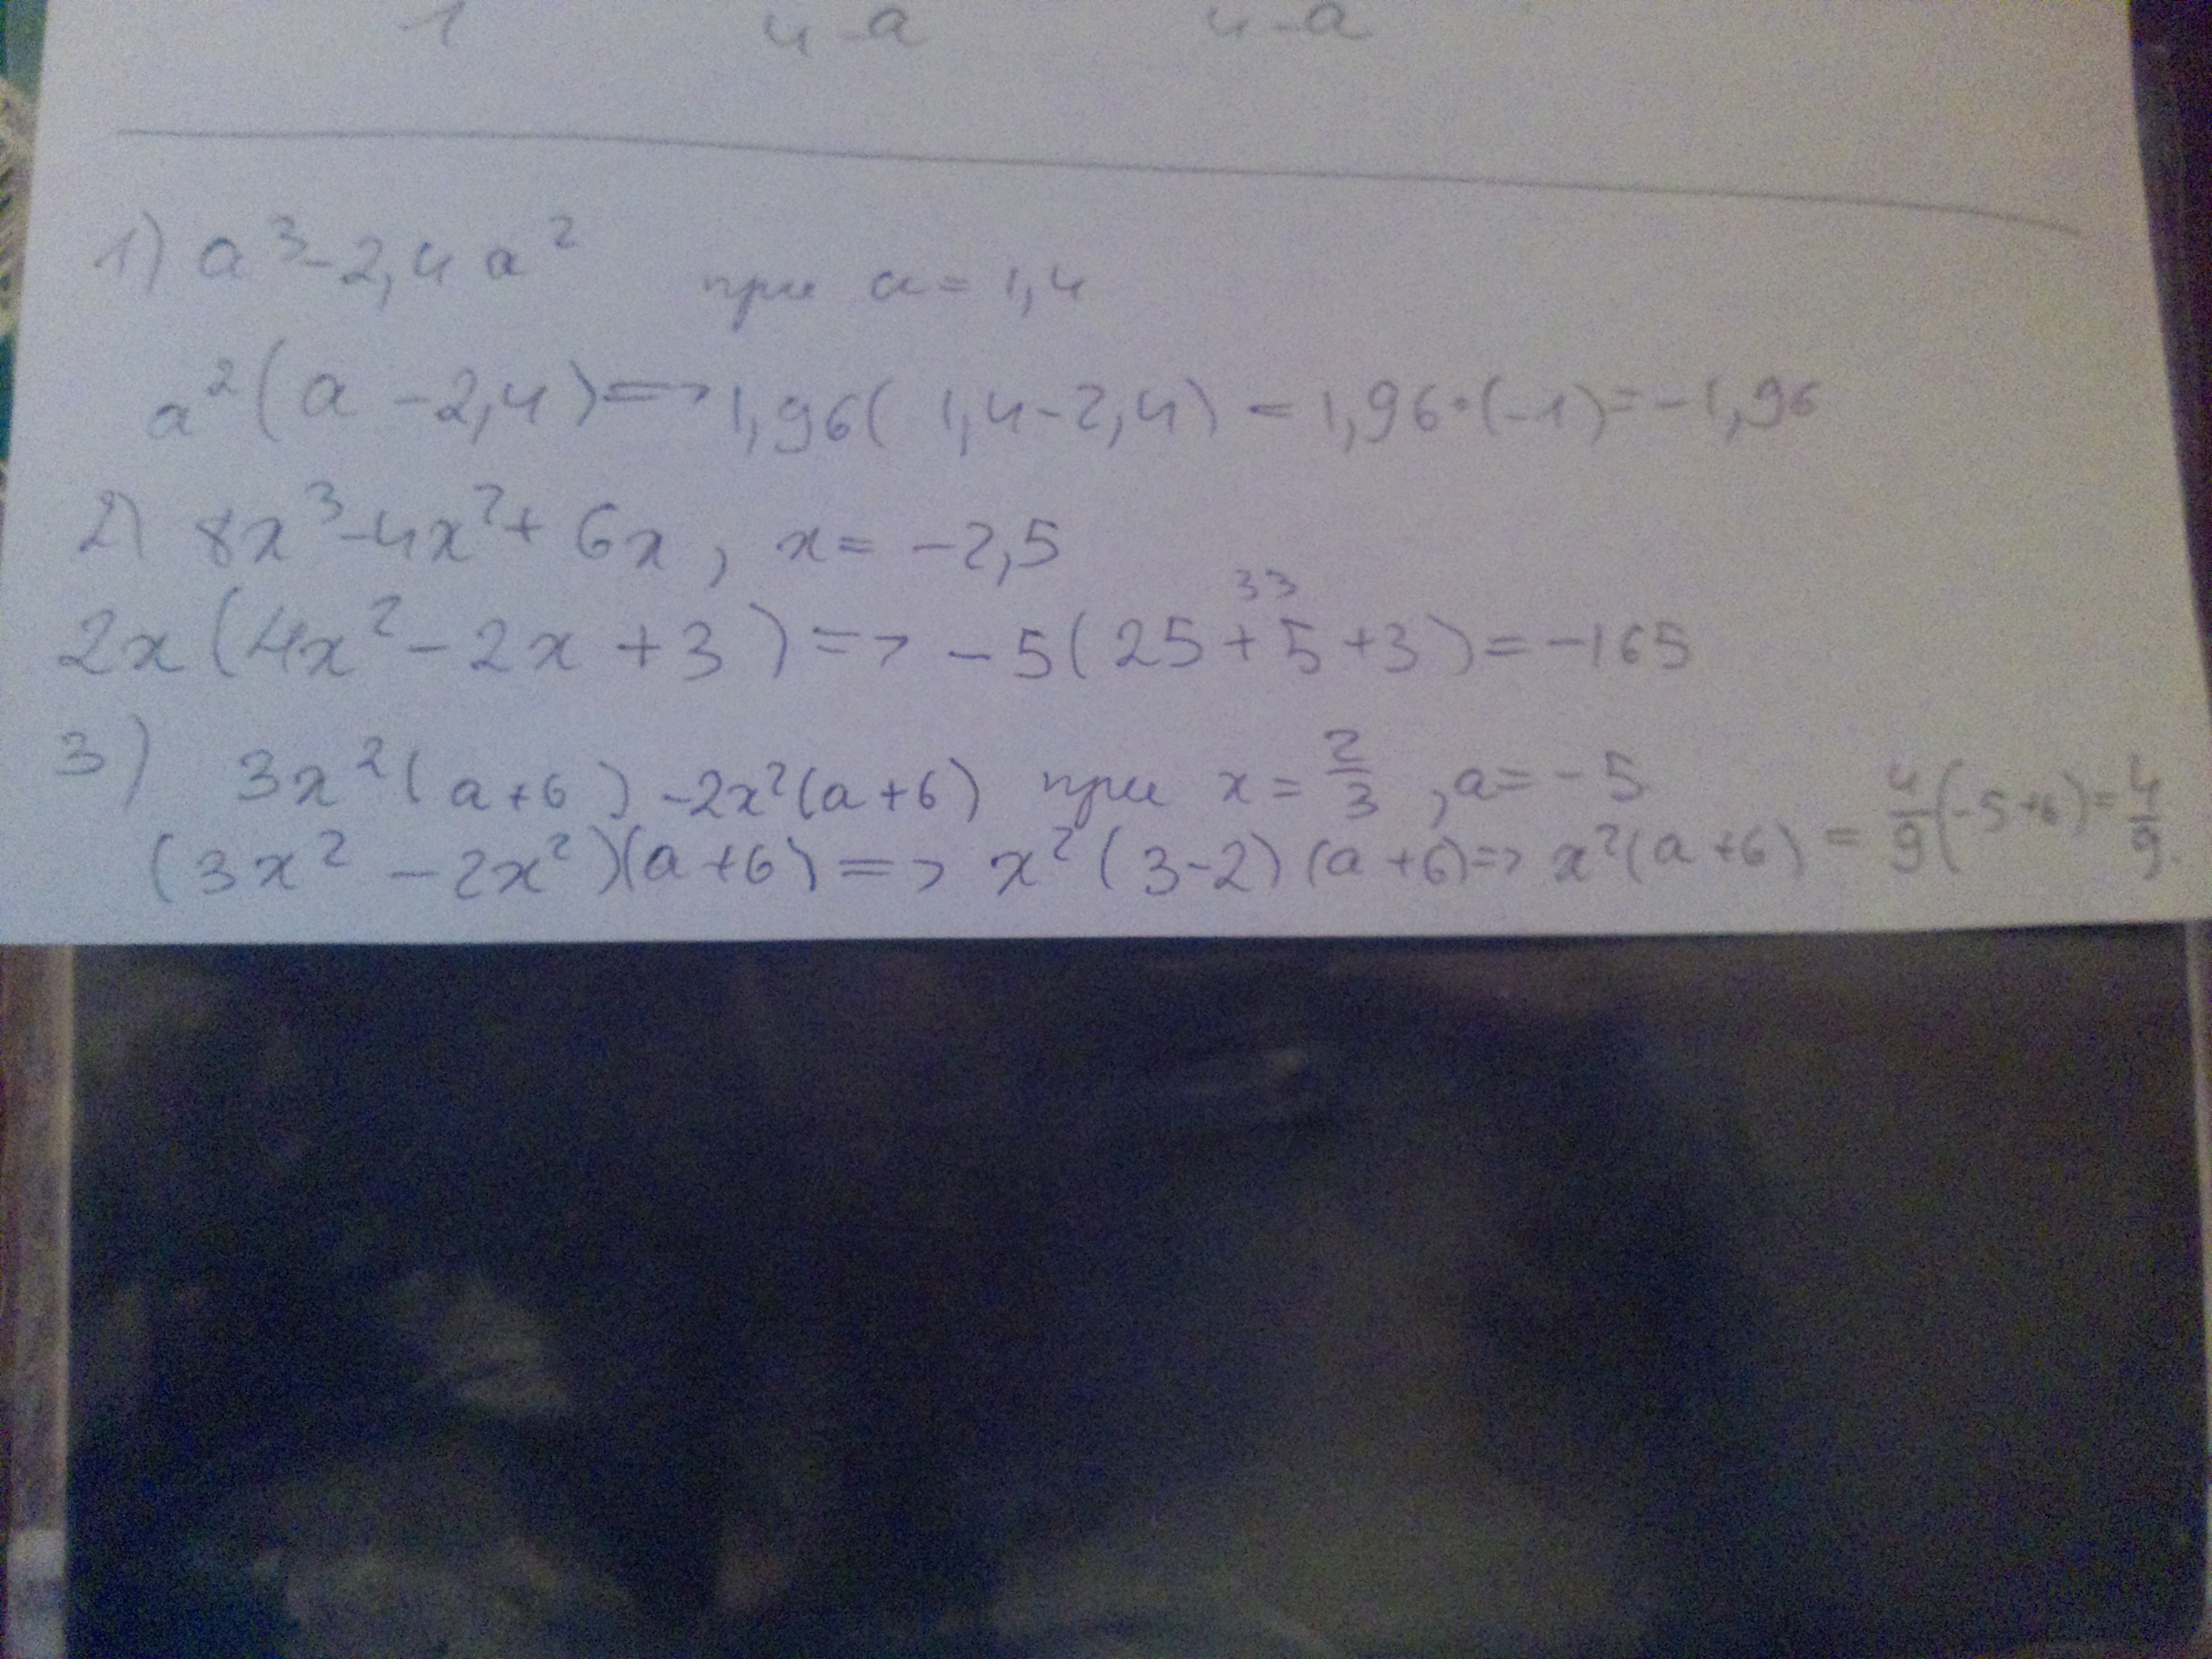 1 4-a 4-a
1) a³-2,4a² при a=1,4
a²(a-2,4)=>1,96(1,4-2,4)=1,96·(-1)=-1,96
2) 8x³-4x²+6x, x=-2,5
33
2x(4x²-2x+3)=>-5(25+5+3)=-165
3) 3x²(a+6)-2x²(a+6) при x=2/3, a=-5
(3x²-2x²)(a+6)=>x²(3-2)(a+6)=>x²(a+6)=4/9(-5+6)=4/9.